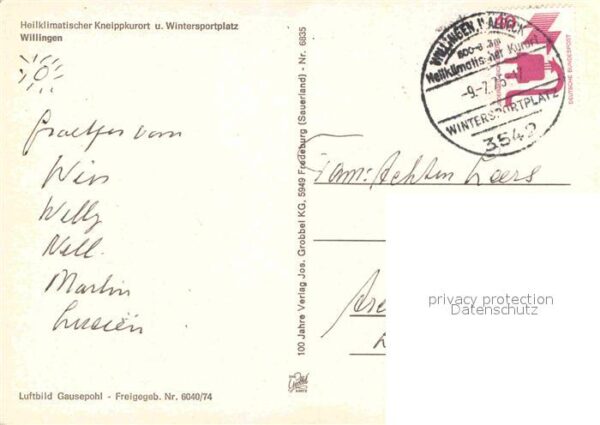 Heilklimatischer Kneippkurort u. Wintersportplatz
Willingen
Groetjes van
Wim
Willy
Nell.
Martin
Lucien
Luftbild Gausepohl - Freigegeb. Nr. 6040/74
100 Jahre Verlag Jos. Grobbel KG, 5949 Fredeburg (Sauerland) - Nr. 6835
WILLINGEN WALDECK
Heilklimatischer Kurort
-9.-7.75
WINTERSPORTPLATZ
3542
DEUTSCHE BUNDESPOST
Fam: Achten Leers
privacy protection
Datenschutz